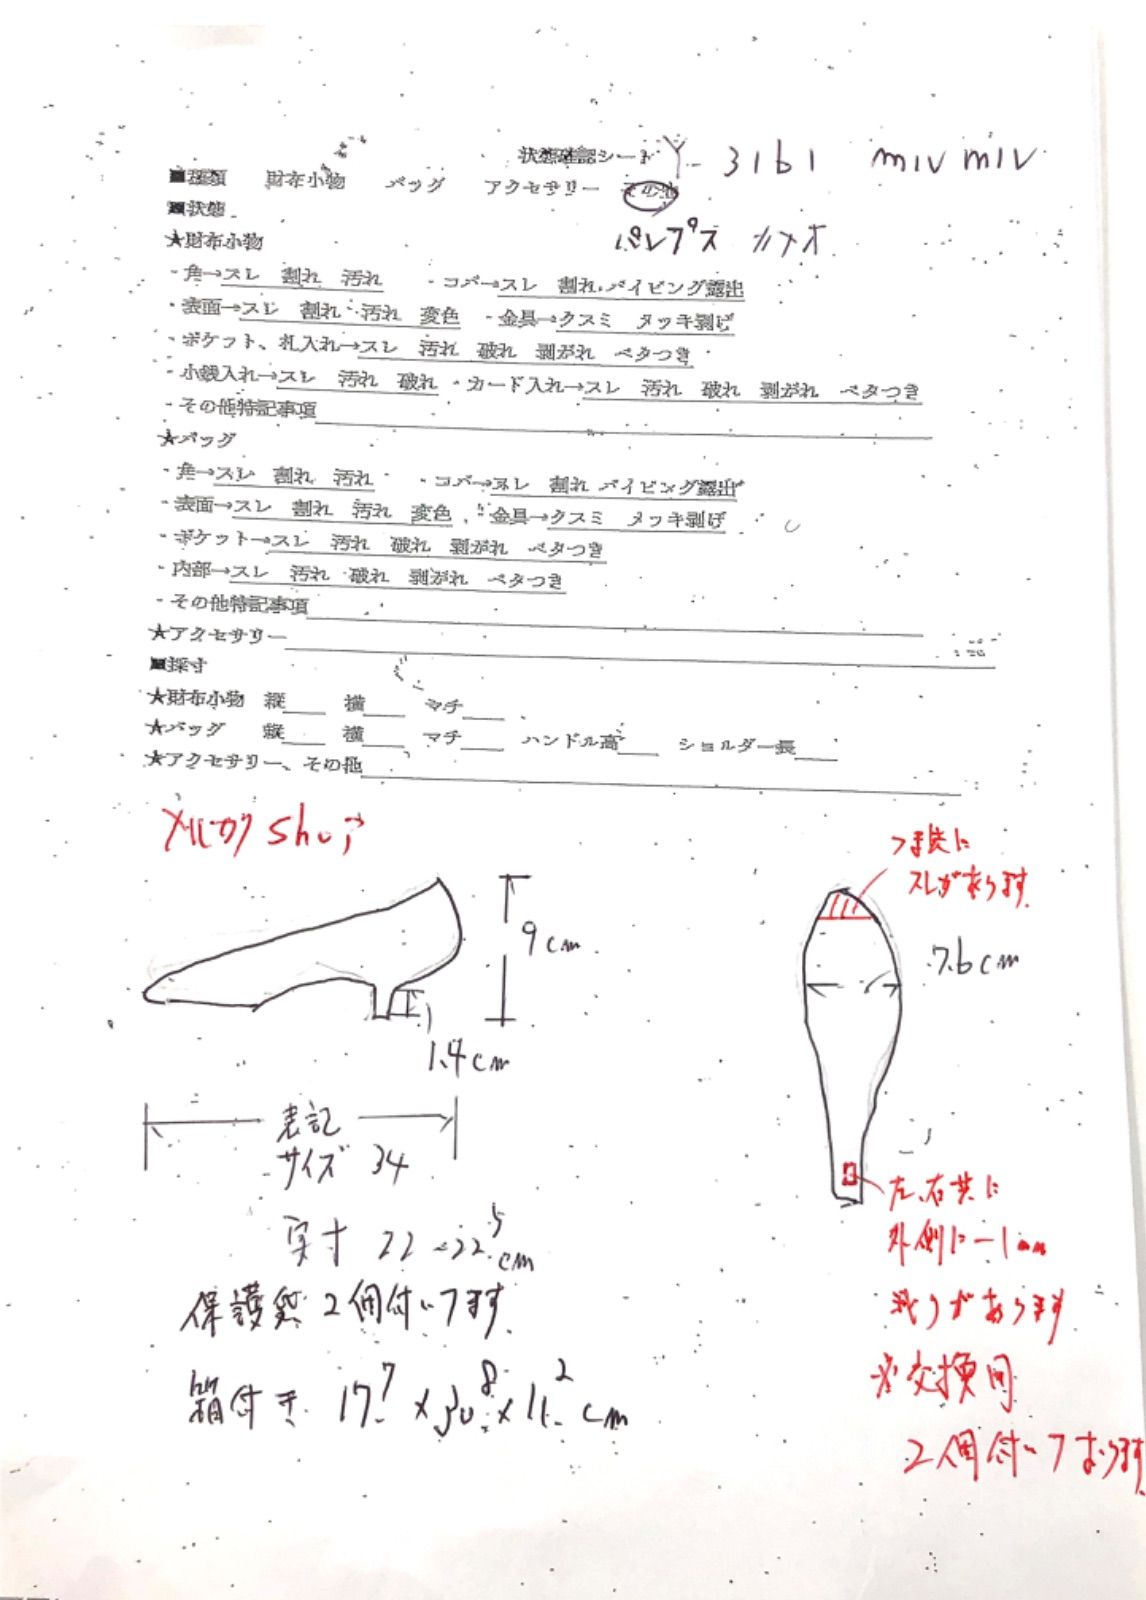 状態確認シート Y-3161 miu miu
■種類 財布小物 バッグ アクセサリー その他
■状態 パンプス
★財布小物
・角→スレ 割れ 汚れ ・コバ→スレ 割れ パイピング露出
・表面→スレ 割れ 汚れ 変色 ・金具→クスミ メッキ剥げ
・ポケット、札入れ→スレ 汚れ 破れ 剥がれ ベタつき
・小銭入れ→スレ 汚れ 破れ ・カード入れ→スレ 汚れ 破れ 剥がれ ベタつき
・その他特記事項
★バッグ
・角→スレ 割れ 汚れ ・コバ→スレ 割れ パイピング露出
・表面→スレ 割れ 汚れ 変色 ・金具→クスミ メッキ剥げ
・ポケット→スレ 汚れ 破れ 剥がれ ベタつき
・内部→スレ 汚れ 破れ 剥がれ ベタつき
・その他特記事項
★アクセサリー
■採寸
★財布小物 縦 横 マチ
★バッグ 縦 横 マチ ハンドル高 ショルダー長
★アクセサリー、その他
メルカリ shop
つま先に
スレがあります
9cm
7.6cm
1.4cm
表記
サイズ 34
左、右共に
外側に-1mm
減りがあります
※交換用
2個付いております
実寸 22-22.5cm
保護袋 2個付いてます
箱付き 17.7×30.8×11.2cm